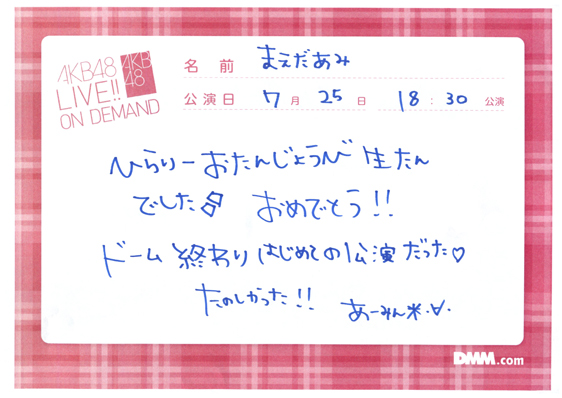 AKB48
LIVE!!
ON DEMAND
AKB
48
名 前 まえだあみ
公演日 7月 25日 18:30 公演
ひらりーおたんじょうび 生たん
でした おめでとう!!
ドーム 終わりはじめての公演だった♡
たのしかった!! あーみん*・∀・
DMM.com